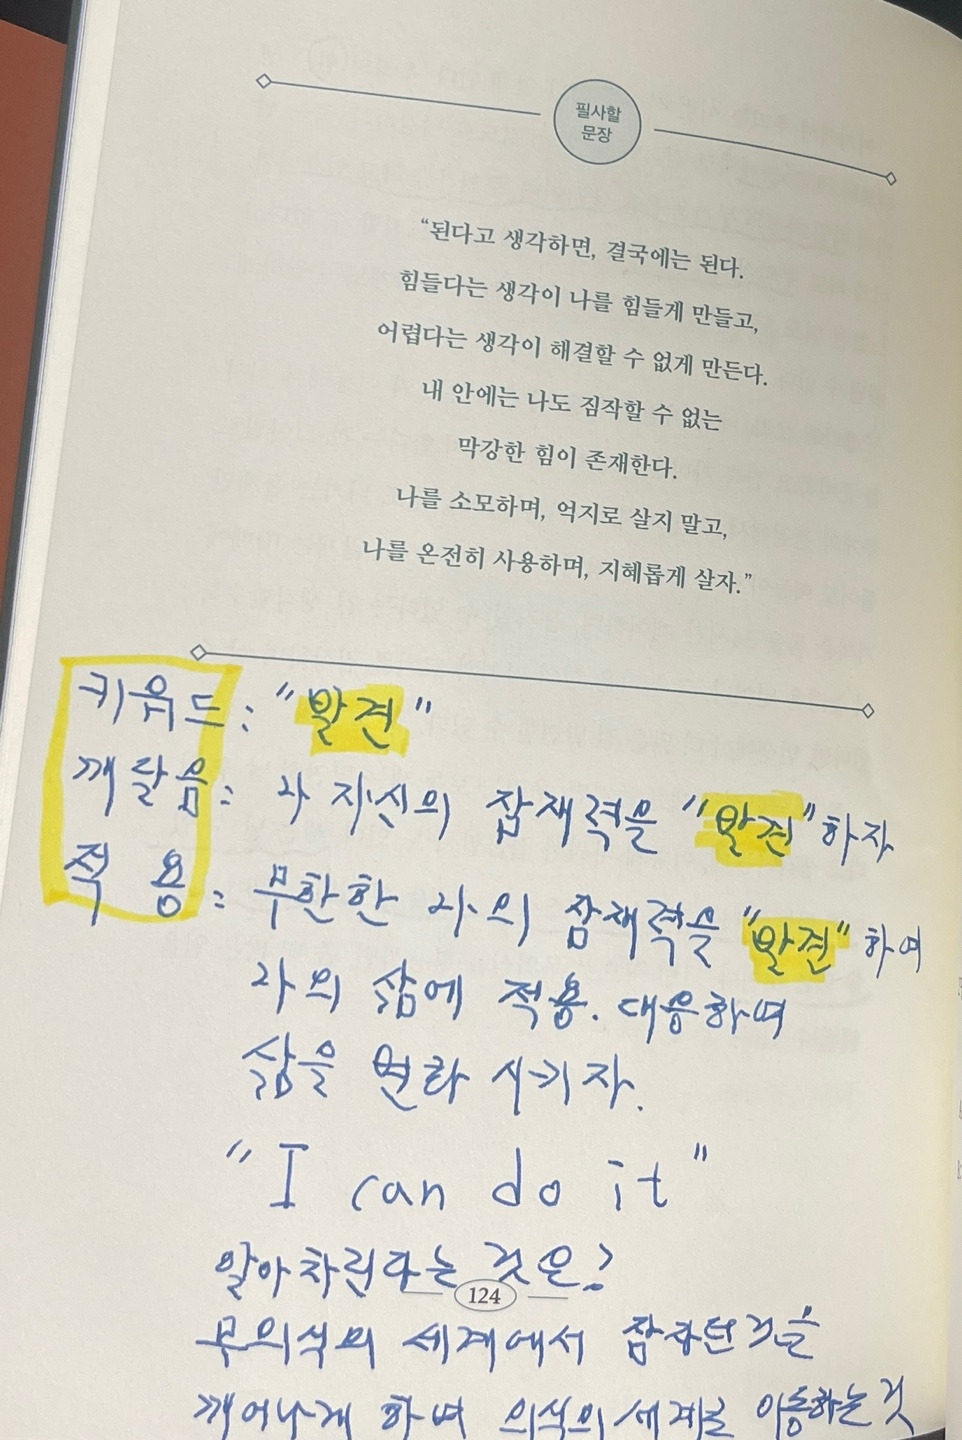 필사할
문장
“된다고 생각하면, 결국에는 된다.
힘들다는 생각이 나를 힘들게 만들고,
어렵다는 생각이 해결할 수 없게 만든다.
내 안에는 나도 짐작할 수 없는
막강한 힘이 존재한다.
나를 소모하며, 억지로 살지 말고,
나를 온전히 사용하며, 지혜롭게 살자.”
키워드 : "발견"
깨달음 : 나 자신의 잠재력을 "발견"하자
적 용 : 무한한 나의 잠재력을 "발견"하여
나의 삶에 적용. 대응하며
삶을 변화 시키자.
"I can do it"
알아차린다는 것은?
124
무의식의 세계에서 잠자던것을
깨어나게 하며 의식의 세계로 이동하는 것